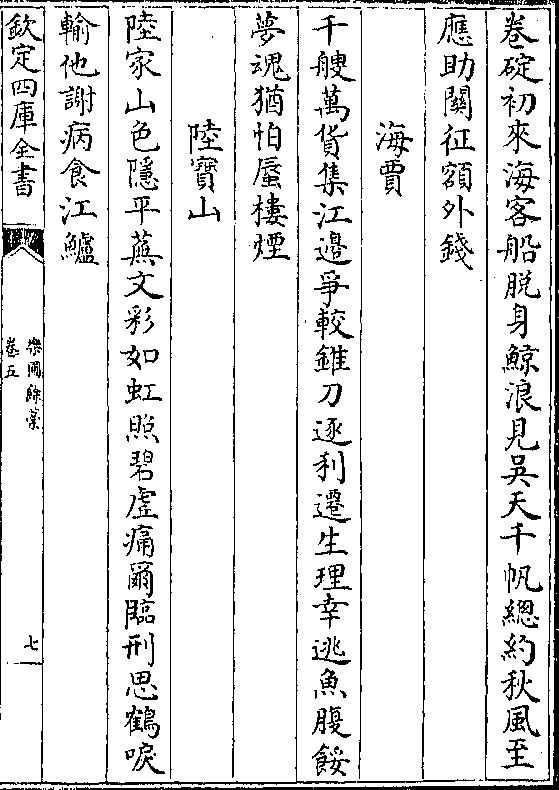 卷碇初來海客船脱身鯨浪見吳天千帆總約秋風至
應助關征額外錢
海賈
千艘萬貨集江邉爭較錐刀逐利遷生理幸逃魚腹餒
夢魂猶怕蜃樓煙
陸寳山
陸家山色隱平蕪文彩如虹照碧虛痛爾臨刑思鶴唳
輸他謝病食江鱸
欽定四庫全書
樂圃餘藁
卷五
七